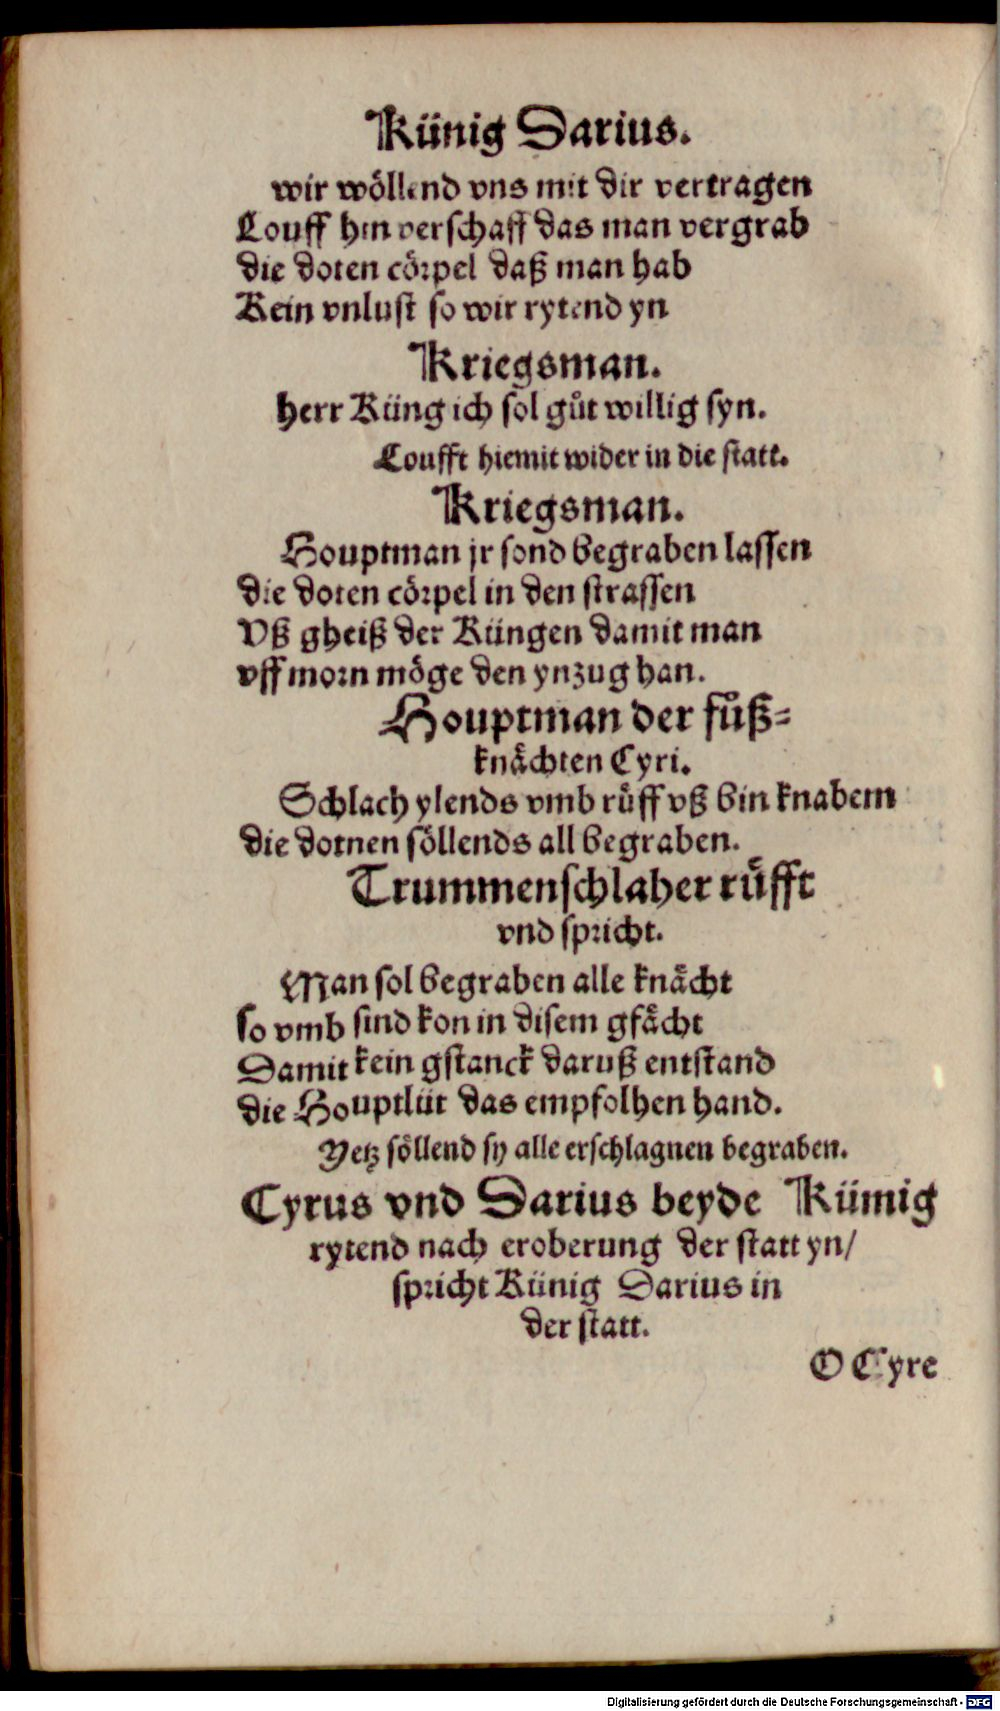 Künig Darius.
wir wöllend vns mit dir vertragen
Louff hin verschaff das man vergrab
die doten cörpel daß man hab
Kein vnlust so wir rytend yn
Kriegsman.
herr Küng ich sol gůt willig syn.
Loufft hiemit wider in die statt.
Kriegsman.
Houptman jr sond begraben lassen
die doten cörpel in den strassen
Vß gheiß der Küngen damit man
vff morn möge den ynzug han.
Houptman der fůß⸗
knächten Cyri.
Schlach ylends vmb rüff vß bin knabem
die dotnen söllends all begraben.
Trummenschlaher rüfft
vnd spricht.
Man sol begraben alle knächt
so vmb sind kon in disem gfächt
Damit kein gstanck daruß entstand
die Houptlüt das empfolhen hand.
Yetz söllend sy alle erschlagnen begraben.
Cyrus vnd Darius beyde Kümig
rytend nach eroberung der statt yn/
spricht Künig Darius in
der statt.
O Cyre
Digitalisierung gefördert durch die Deutsche Forschungsgemeinschaft - DFG